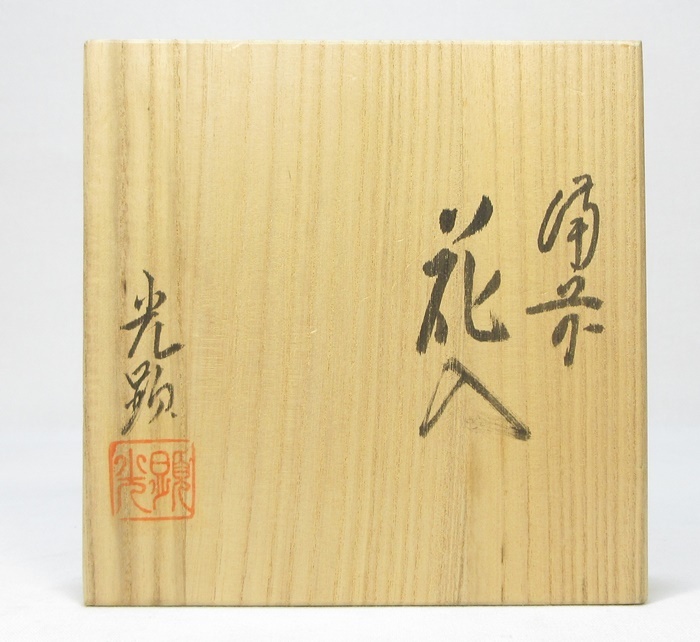 備前
花入
光顕
光顕